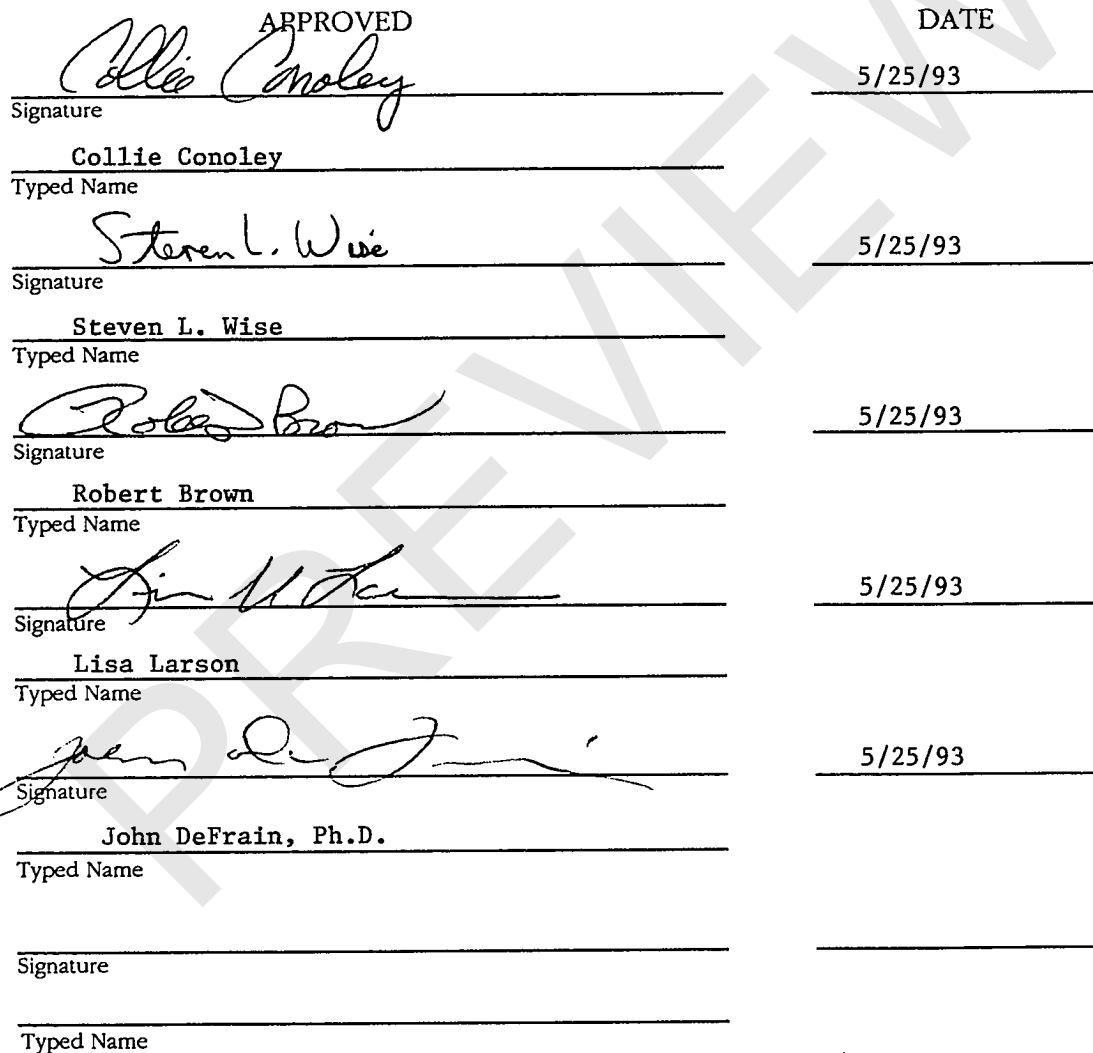 APPROVED DATE
Collie Conoley 5/25/93
Signature
Collie Conoley
Typed Name
Steven L. Wise 5/25/93
Signature
Steven L. Wise
Typed Name
Robert Brown 5/25/93
Signature
Robert Brown
Typed Name
5/25/93
Signature
Lisa Larson
Typed Name
John DeFrain 5/25/93
Signature
John DeFrain, Ph.D.
Typed Name
Signature
Typed Name
PREVIEW